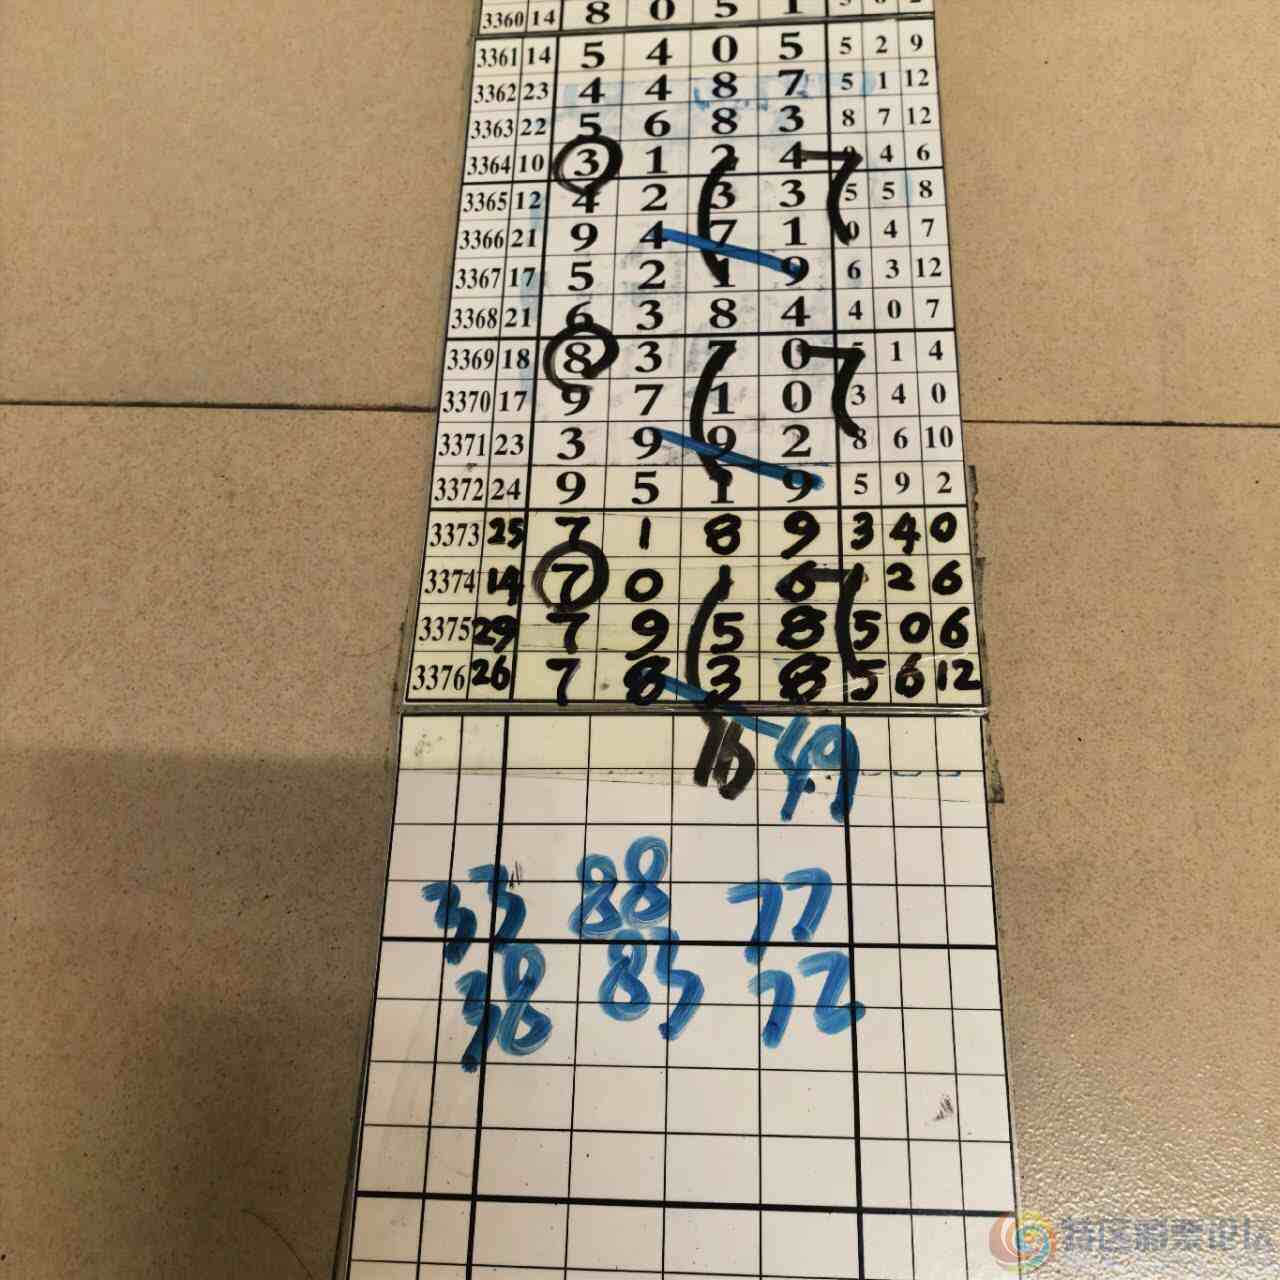 3360 14 8 0 5 1
3361 14 5 4 0 5 5 2 9
3362 23 4 4 8 7 5 1 12
3363 22 5 6 8 3 8 7 12
3364 10 3 1 2 4 4 6
3365 12 4 2 3 3 5 5 8
3366 21 9 4 7 1 0 4 7
3367 17 5 2 1 9 6 3 12
3368 21 6 3 8 4 4 0 7
3369 18 8 3 7 0 5 1 4
3370 17 9 7 1 0 3 4 0
3371 23 3 9 9 2 8 6 10
3372 24 9 5 1 9 5 9 2
3373 25 7 1 8 9 3 4 0
3374 14 7 0 1 6 1 2 6
3375 29 7 9 5 8 5 0 6
3376 26 7 8 3 8 5 6 12
16 49
33 88 77
38 83 72
特区彩票论坛